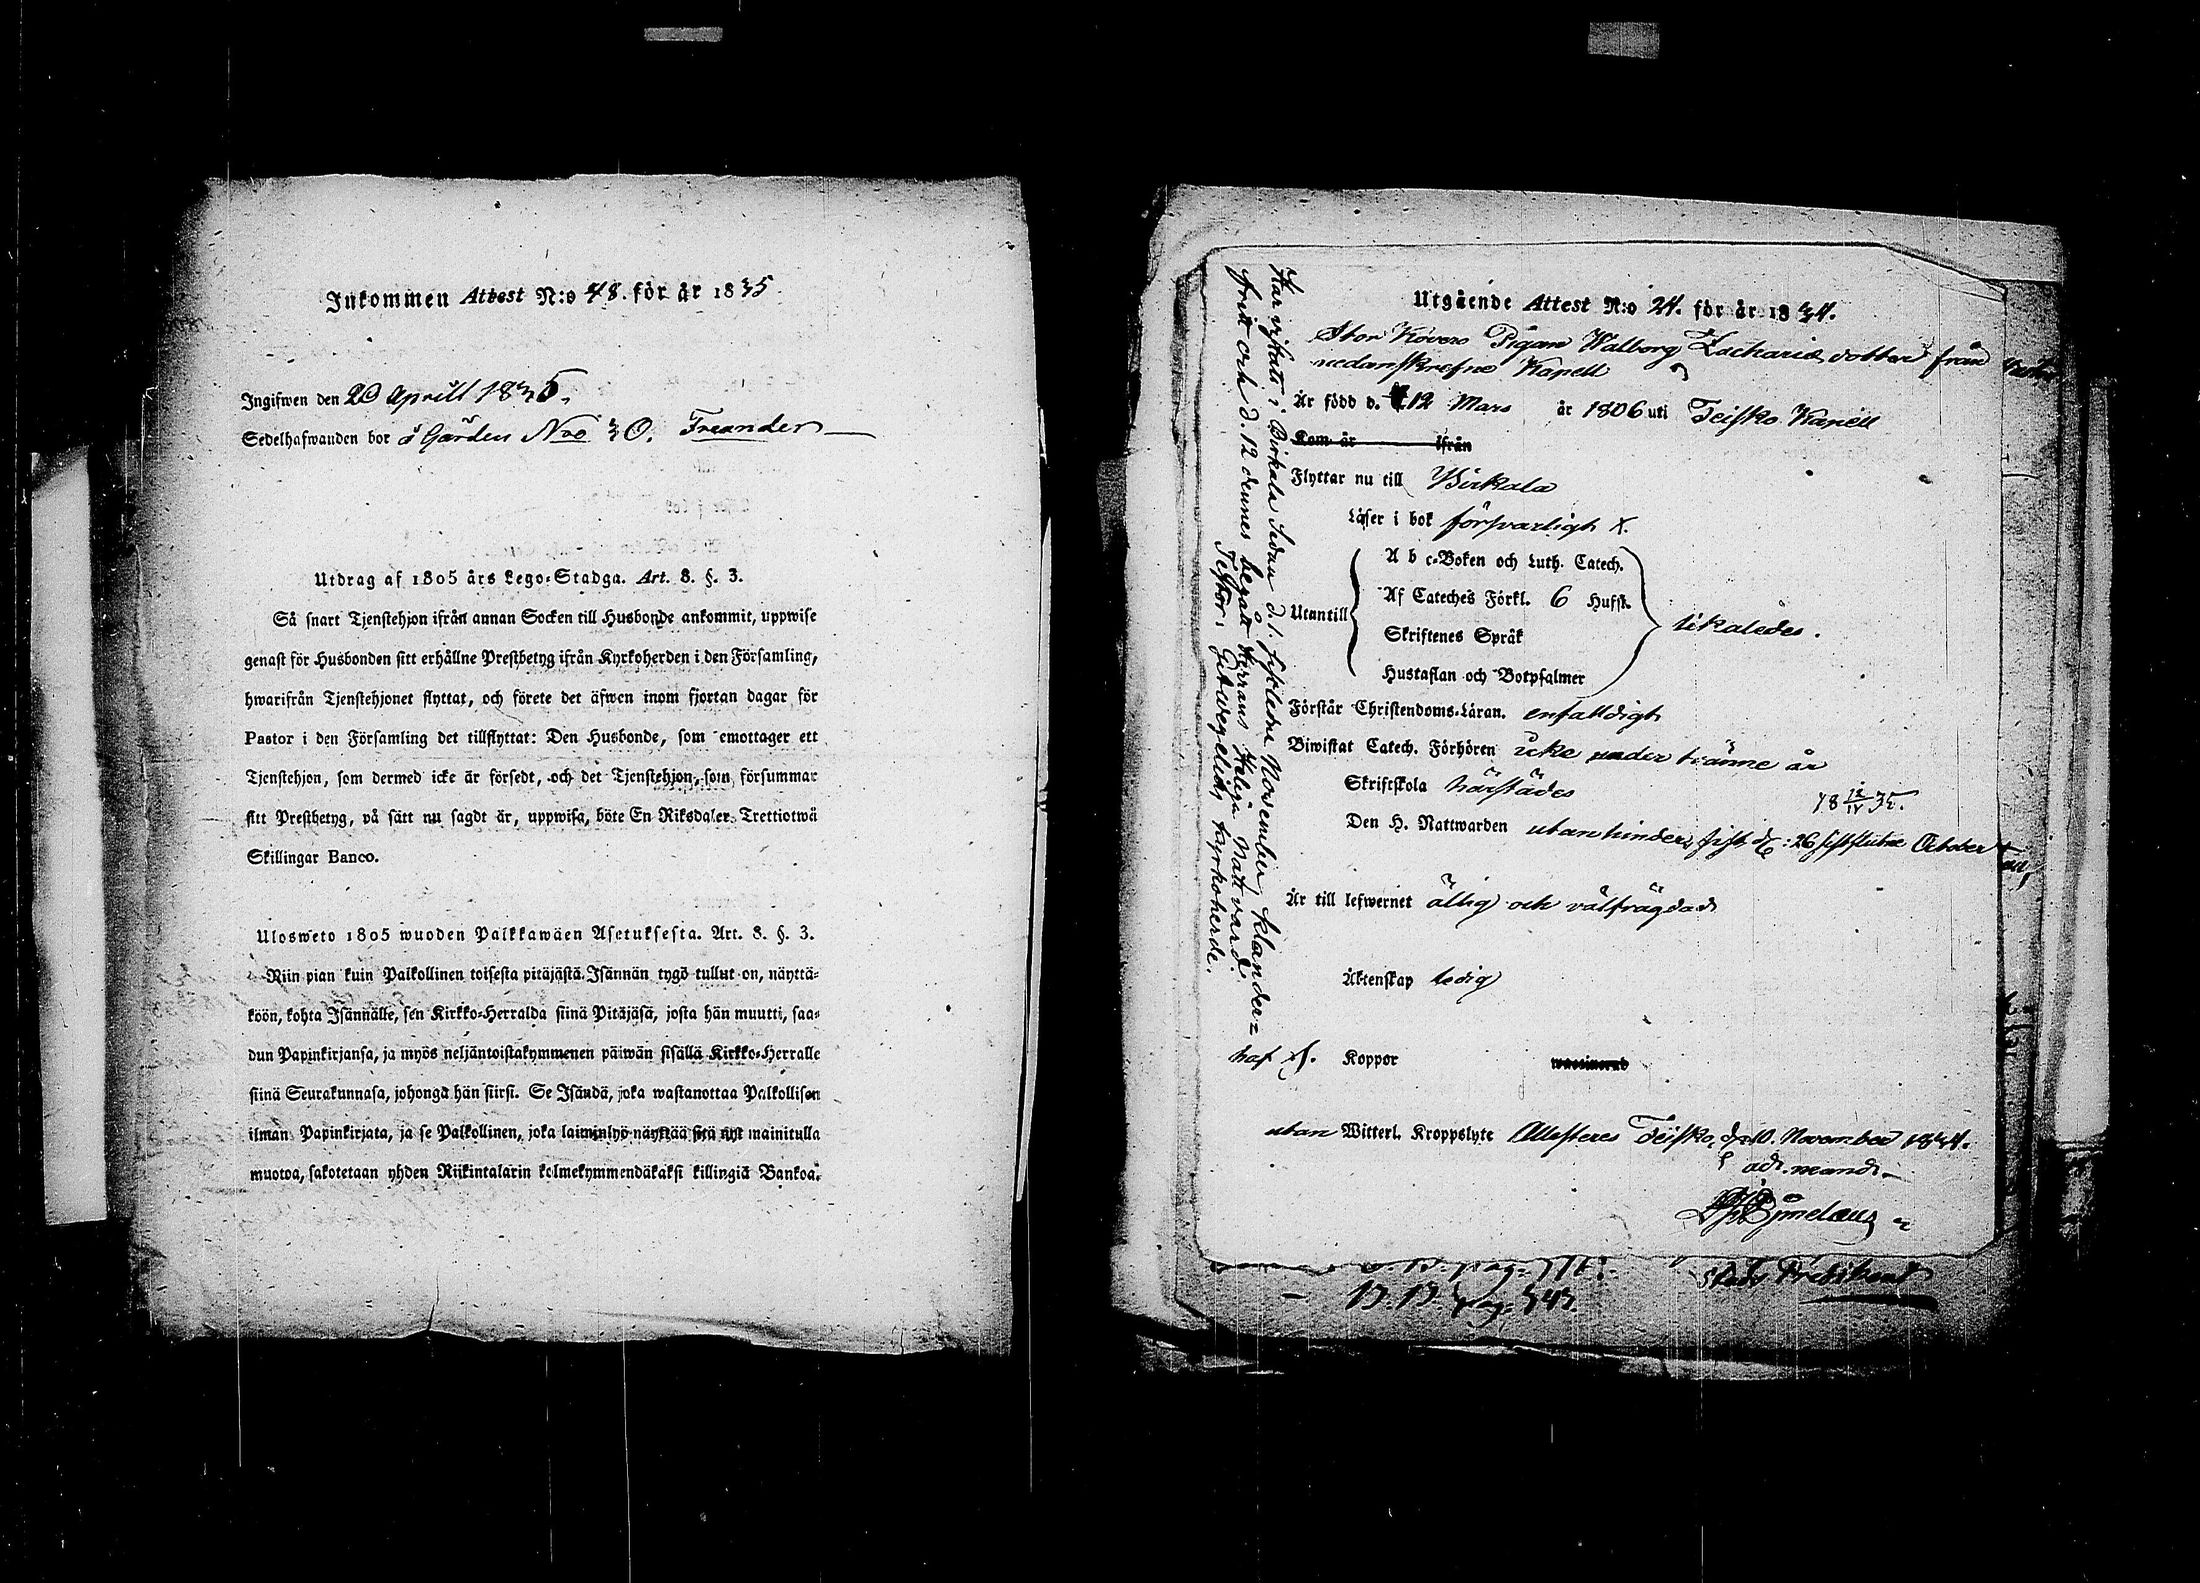 Inkommen Attest N:o 48. för år 1835
Ingifwen den 20 Aprill 1835.
Sedelhafwanden bor i Gården Nro 30. Freander
Utdrag af 1805 års Lego-Stadga. Art. 8. §. 3.
Så snart Tjenstehjon ifrån annan Socken till Husbonde ankommit, uppwise
genast för Husbonden sitt erhållne Prestbetyg ifrån Kyrkoherden i den Församling,
hwarifrån Tjenstehjonet flyttat, och förete det äfwen inom fjortan dagar för
Pastor i den Församling det tillflyttat: Den Husbonde, som emottager ett
Tjenstehjon, som dermed icke är försedt, och det Tjenstehjon, som försummar
sitt Prestbetyg, på sätt nu sagdt är, uppwisa, böte En Riksdaler Trettiotwå
Skillingar Banco.
Ulosweto 1805 wuoden Palkkawäen Asetuksesta. Art. 8. §. 3.
Niin pian kuin Palkollinen toisesta pitäjästä Isännän tygö tullut on, näyttä-
köön, kohta Isännälle, sen Kirkko-Herralda siinä Pitäjäsä, josta hän muutti, saa-
dun Papinkirjansa, ja myös neljäntoistakymmenen päiwän sisällä Kirkko-Herralle
siinä Seurakunnasa, johonga hän siirsi. Se Isändä, joka wastanottaa Palkollisen
ilman Papinkirjata, ja se Palkollinen, joka laiminlyö näyttää sitä nyt mainitulla
muotoa, sakotetaan yhden Riikintalarin kolmekymmendäkaksi killingiä Bankoa.
Utgående Attest N:o 24. för år 1834.
Stor Kövers Pigan Walborg Zachariæ dotter från
nedanskrefne Kapell
Är född d. 12 Mars år 1806 uti Teisko Kapell
Kom år ifrån
Flyttar nu till Birkala
Läser i bok försvarligh x.
Utantill
A b c-Boken och Luth. Catech.
Af Cateches Förkl. 6 Hufst.
Skriftenes Språk
Hustaflan och Botpsalmer
likaledes.
Förstår Christendoms-Läran. enfalldigt
Biwistat Catech. Förhören icke under tvänne år
Skriftskola härstädes
18 12/IV 35.
Den H. Nattwarden utan hinder, sist d: 26 sistslutne October
Är till lefwernet ällig och välfrägdad
Äktenskap ledig
haf. Koppor waccinerad
utan Witterl. Kroppslyte Attesteras Teisko, d. 10. November 1834.
adr. mand.
Har vistats i Birkala sedan d. 1. sistledne November klander=
fritt och d. 12 dennes begått Herrans Heliga Nattvard.
Testor, Kyrkoherde.
pag. 343.